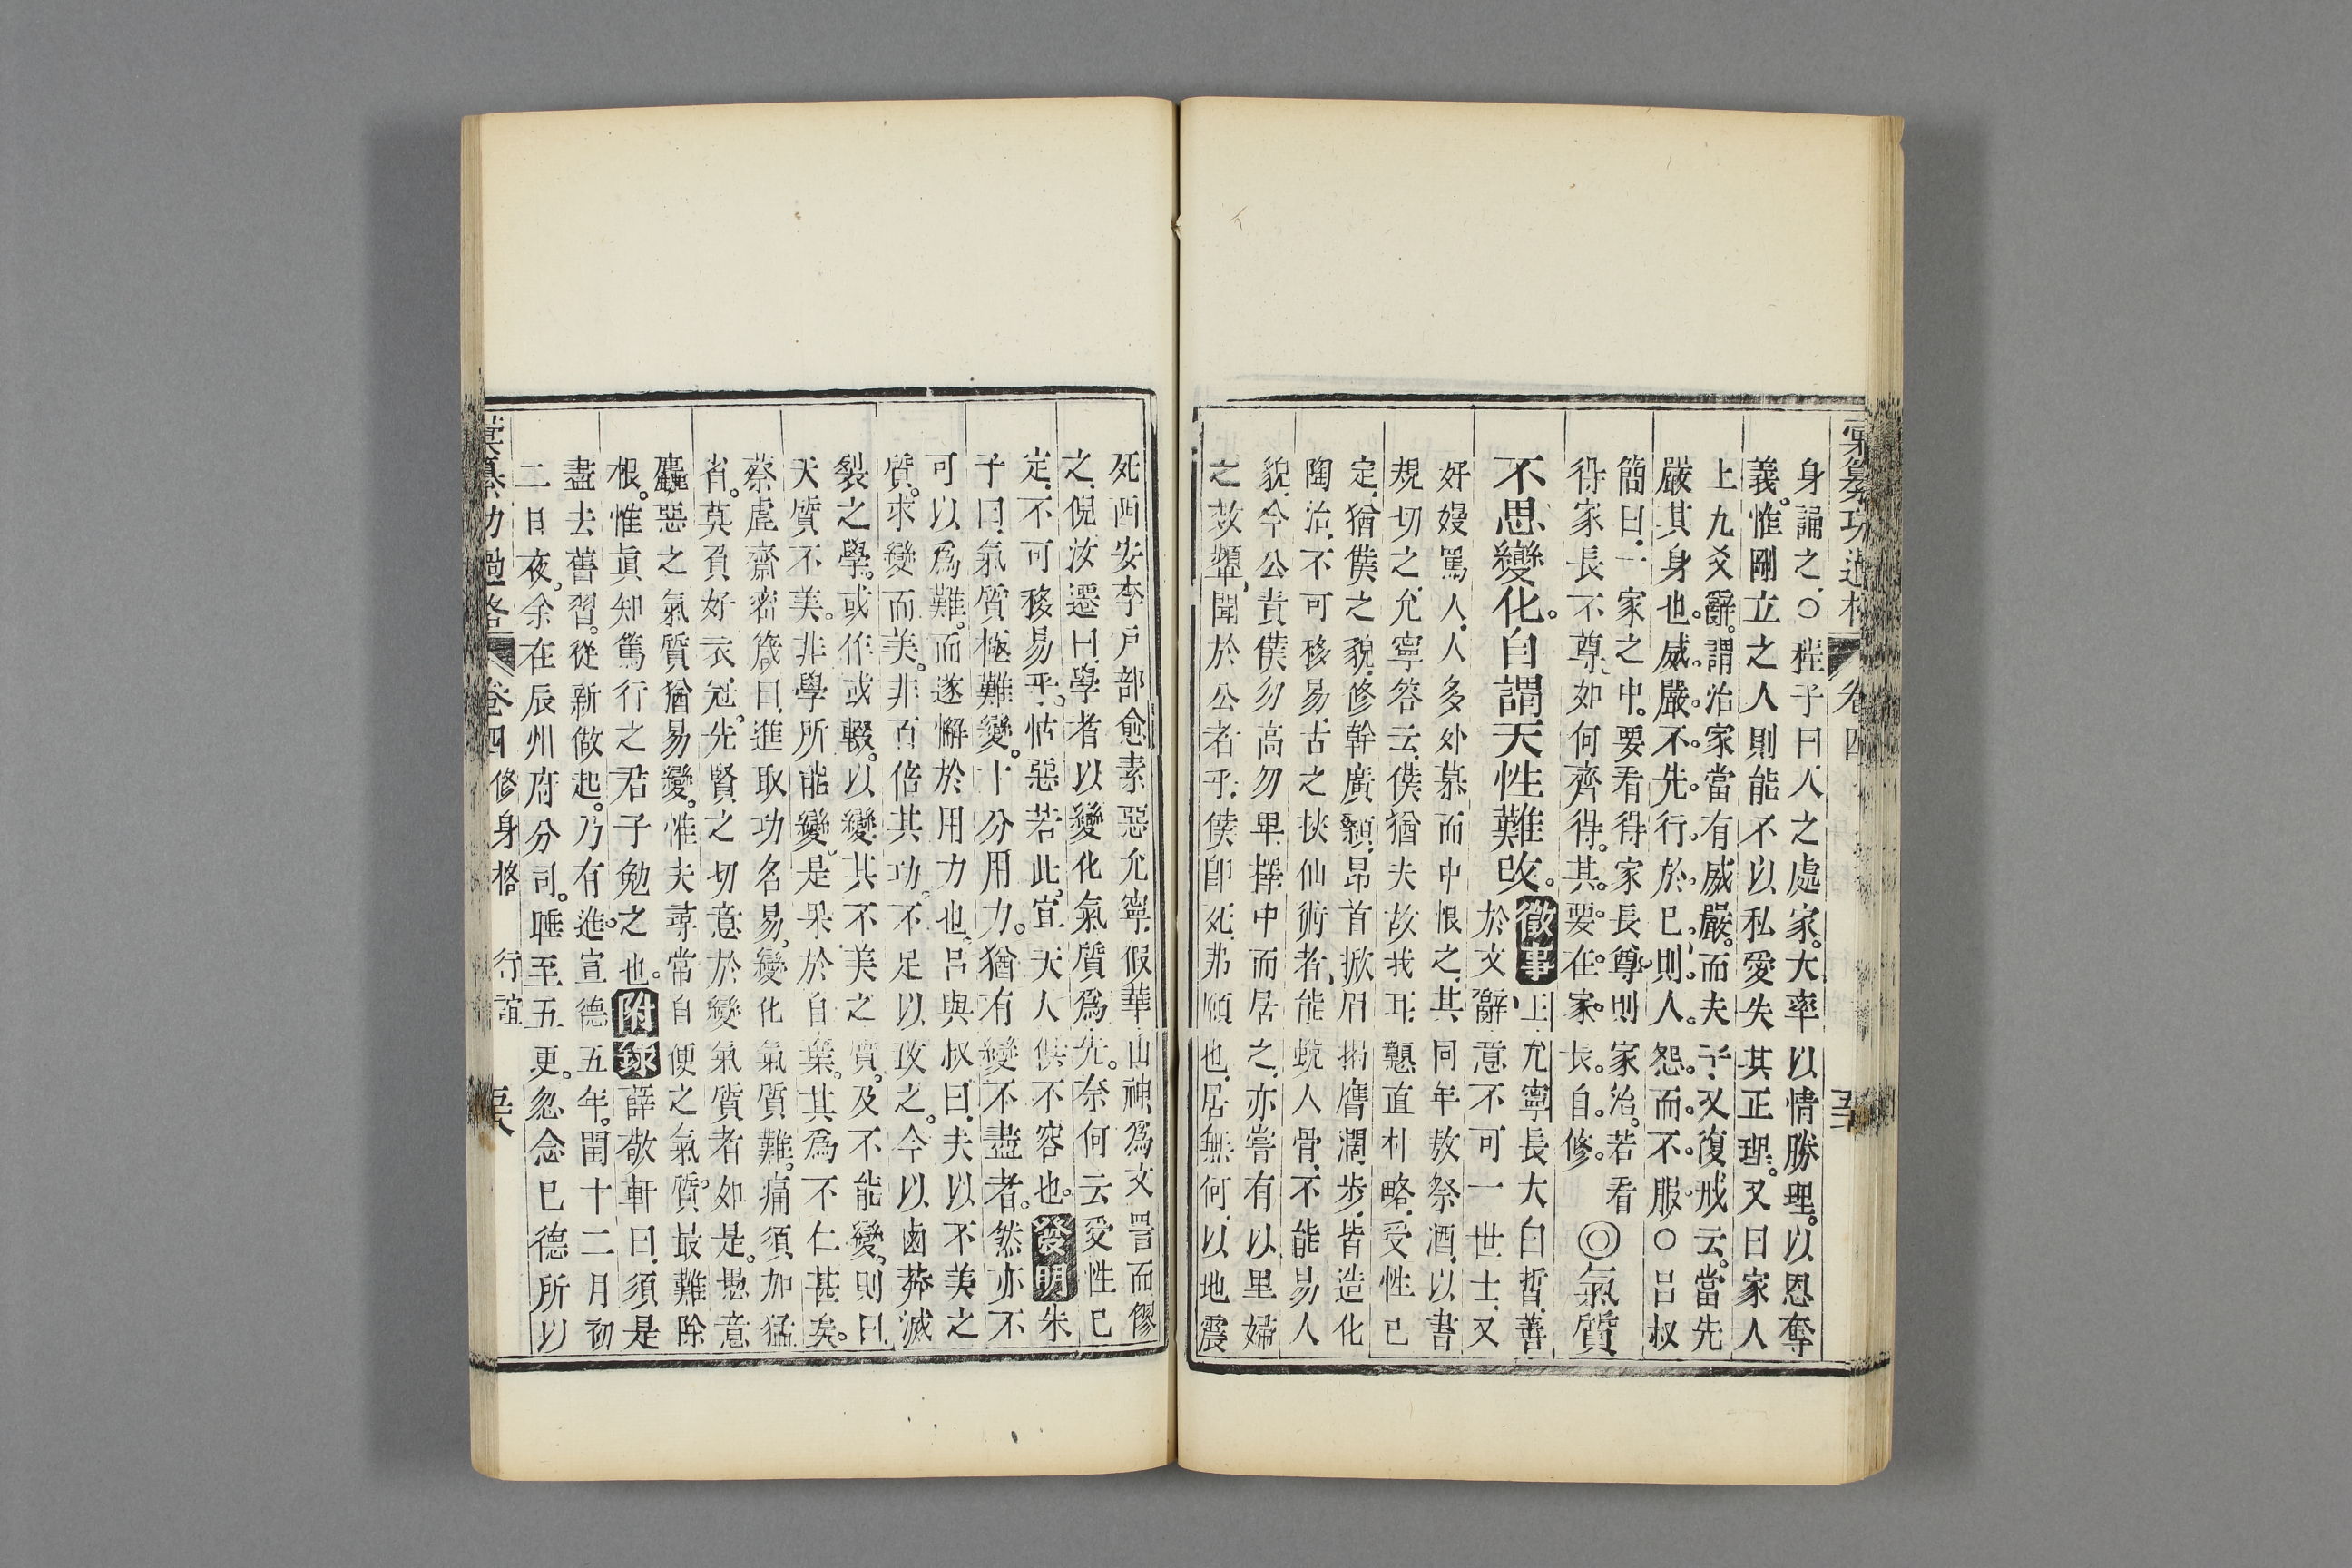 彙纂功過格 卷四
身誦之○程子曰人之處家大率以情勝理以恩奪
義惟剛立之人則能不以私愛失其正理又曰家人
上九爻辭謂治家當有威嚴而夫子又復戒云當先
嚴其身也威嚴不先行於己則人怨而不服○呂叔
簡曰一家之中要看得家長尊則家治若看
得家長不尊如何齊得其要在家長自修 ◎氣質
不思變化自謂天性難改 徵事 王允寧長大白晳善
於文辭意不可一世士又
好嫚罵人人多外慕而中恨之其同年敖祭酒以書
規切之允寧答云僕猶夫故我耳戇直朴略受性已
定猶僕之貌修幹廣顙昂首掀眉揚膺濶步皆造化
陶冶不可移易古之挾仙術者能蛻人骨不能易人
貌今公責僕勿高勿畢擇中而居之亦嘗有以里婦
之效顰聞於公者乎僕卽死弗願也居無何以地震
死西安李戶部愈素惡允寧假華山神爲文詈而僇
之倪汝遷曰學者以變化氣質爲先奈何云受性已
定不可移易乎怙惡若此宜天人俱不容也 發明 朱
子曰氣質極難變十分用力猶有變不盡者然亦不
可以爲難而遂懈於用力也呂與叔曰夫以不美之
質求變而美非百倍其功不足以攻之今以鹵莽滅
裂之學或作或輟以變其不美之質及不能變則曰
天質不美非學所能變是果於自棄其爲不仁甚矣
蔡虛齋密箴曰進取功名易變化氣質難痛須加猛
省莫負好衣冠先賢之切意於變氣質者如是愚意
麤惡之氣質猶易變惟夫尋常自便之氣質最難除
根惟眞知篤行之君子勉之也 附錄 薛敬軒曰須是
盡去舊習從新做起乃有進宣德五年閏十二月初
二日夜余在辰州府分司睡至五更忽念己德所以
彙纂功過格 卷四 修身格 行誼 五八